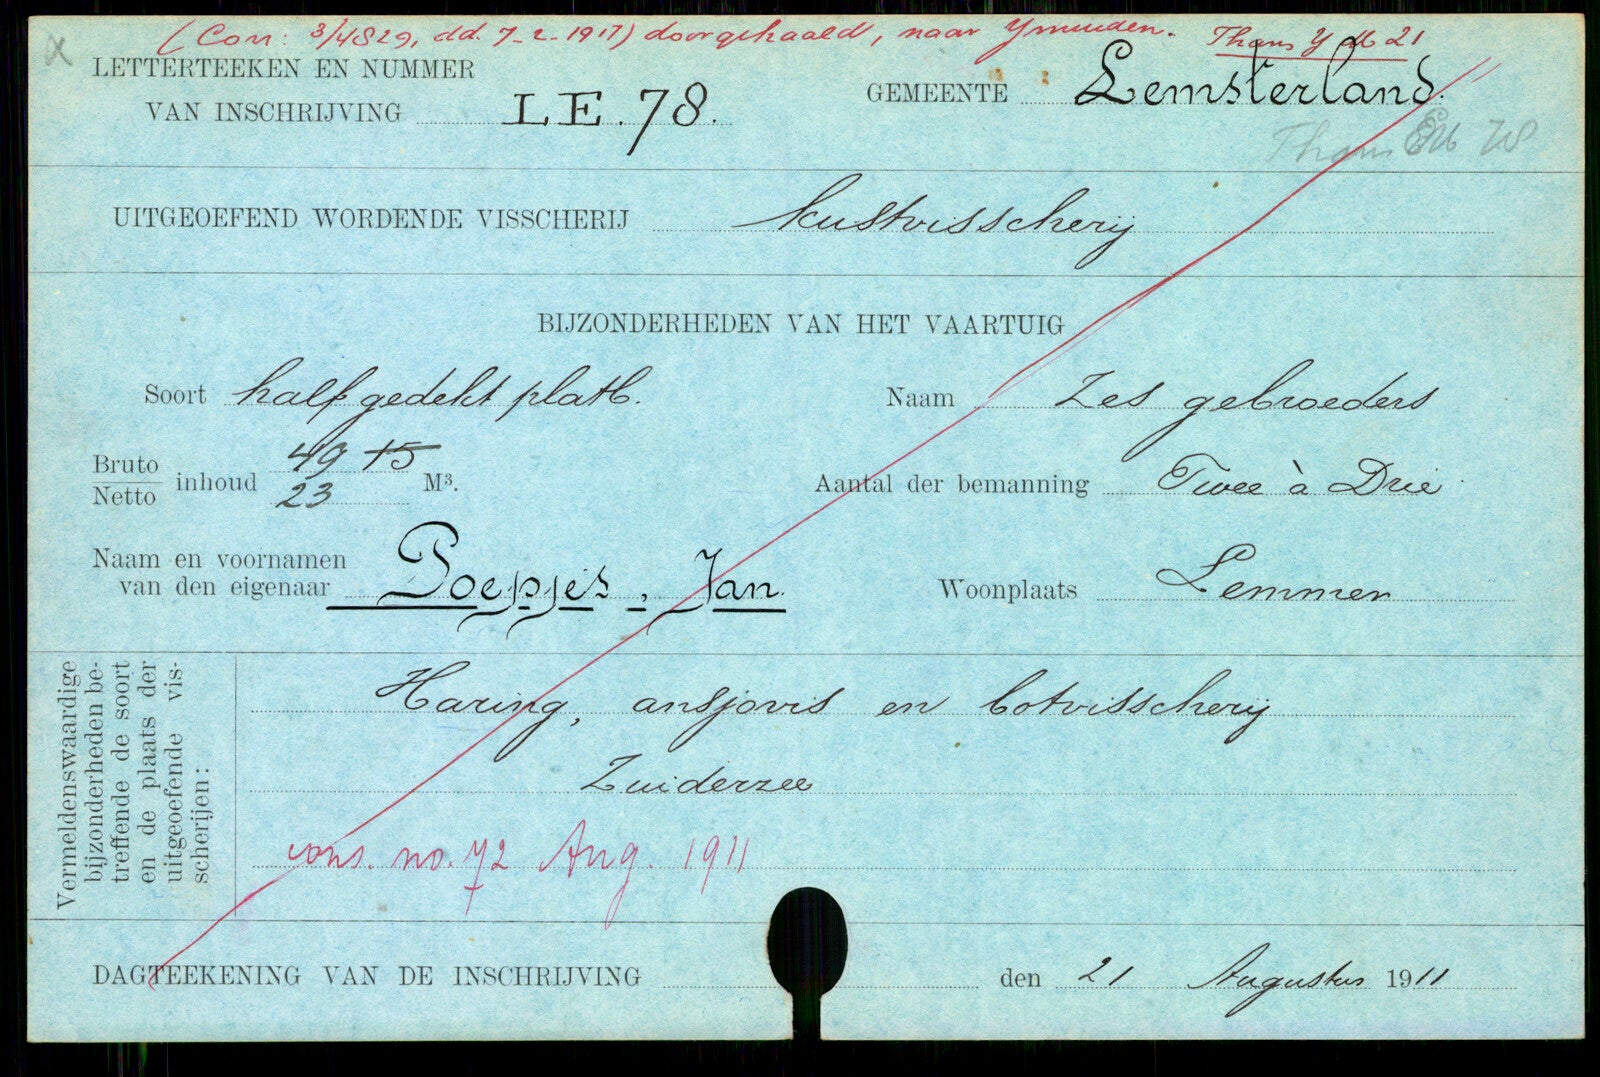 (Con: 3/4829, dd. 7-2-1917) doorgehaald, naar Ymuiden. Thans Y M 21
LETTERTEEKEN EN NUMMER
VAN INSCHRIJVING LE.78.
GEMEENTE Lemsterland.
Thans
UITGEOEFEND WORDENDE VISSCHERIJ kustvisscherij
BIJZONDERHEDEN VAN HET VAARTUIG
Soort half gedekt platb.
Naam Zes gebroeders
Bruto 49 15
Netto inhoud 23 M³.
Aantal der bemanning Twee à Drie
Naam en voornamen
van den eigenaar Poepjes, Jan.
Woonplaats Lemmer
Vermeldenswaardige
bijzonderheden be-
treffende de soort
en de plaats der
uitgeoefende vis-
scherijen:
Haring, ansjovis en botvisscherij
Zuiderzee
cons. no. 72 Aug. 1911
DAGTEEKENING VAN DE INSCHRIJVING den 21 Augustus 1911